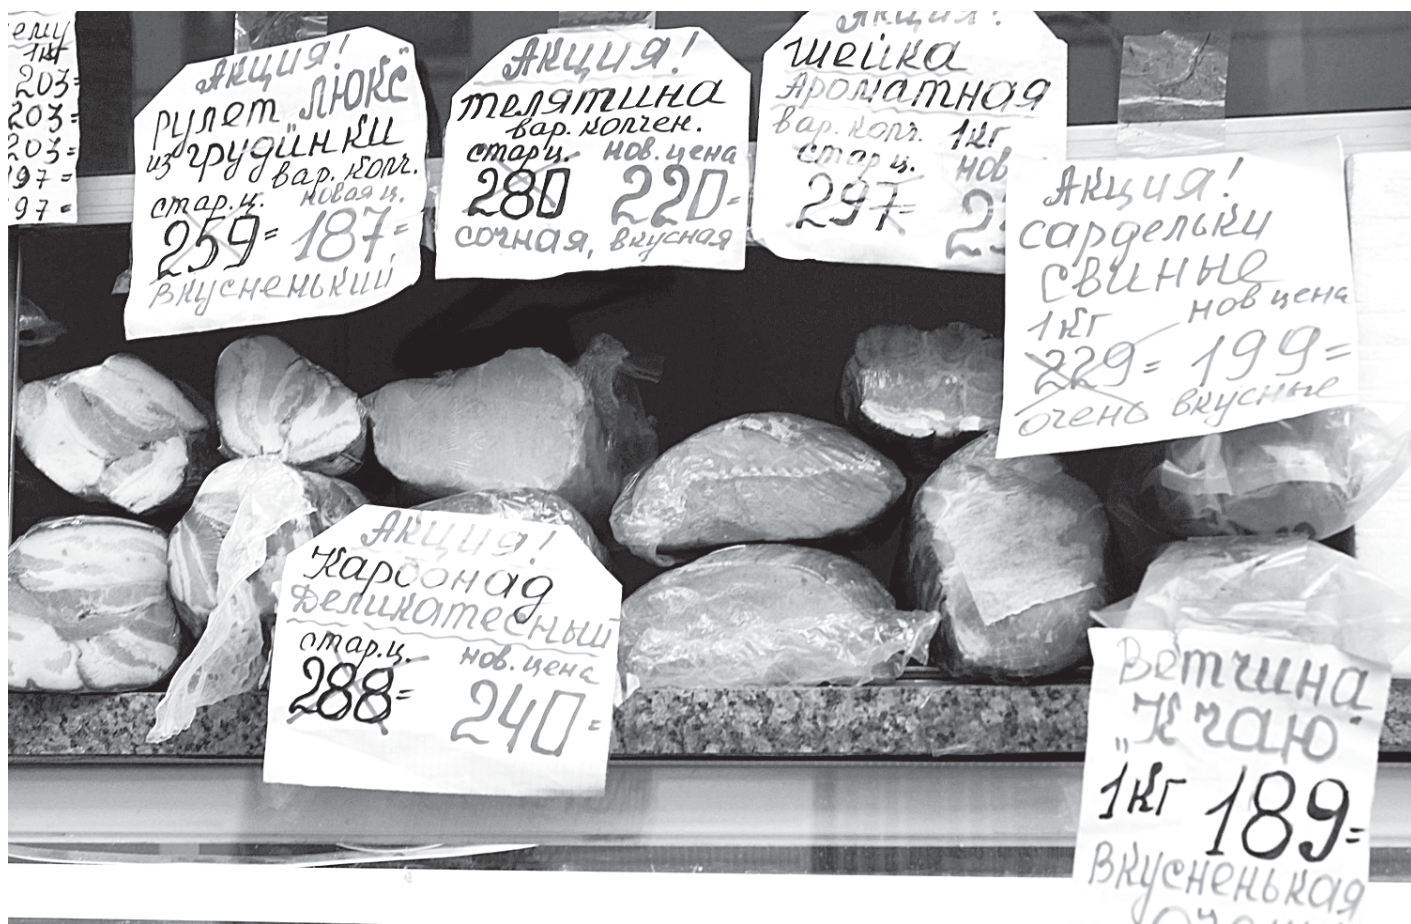 ему
1кг
203=
203=
203=
97=
97=
Акция!
рулет „ЛЮКС"
из грудинки
вар. копч.
стар.ц. новая ц.
259= 187=
вкусненький
Акция!
телятина
вар. копчен.
стар.ц. нов.цена
280 220=
сочная, вкусная
Акция!
шейка
Ароматная
вар. копч. 1кг
стар ц. нов
297= 2
Акция!
сардельки
свиные
1кг нов цена
229= 199=
очень вкусные
Акция!
Карбонад
Деликатесный
стар.ц. нов.цена
288= 240=
Ветчина
„К чаю"
1кг 189=
Вкусненькая